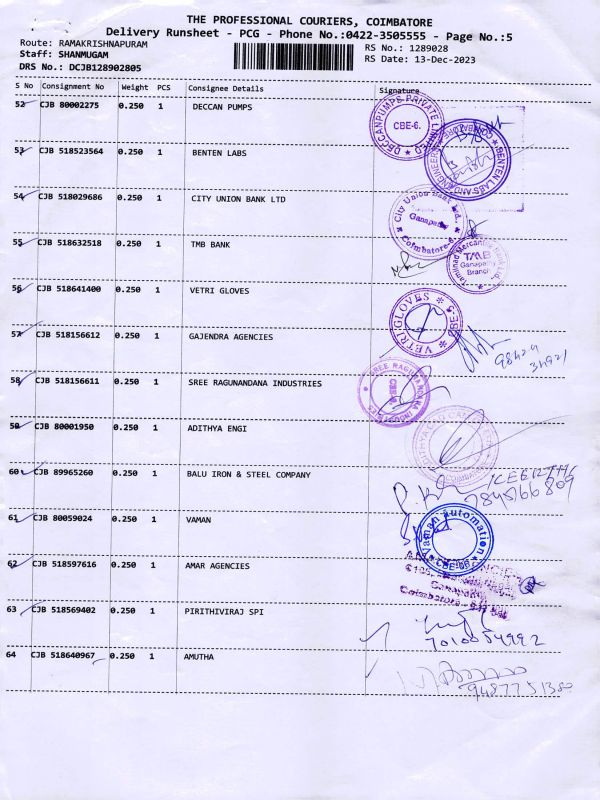 THE PROFESSIONAL COURIERS, COIMBATORE
Delivery Runsheet - PCG - Phone No.:0422-3505555 - Page No.:5
Route: RAMAKRISHNAPURAM RS No.: 1289028
Staff: SHANMUGAM RS Date: 13-Dec-2023
DRS No.: DCJB128902805
S No Consignment No Weight PCS Consignee Details Signature
52 CJB 80002275 0.250 1 DECCAN PUMPS
DECCANPUMPS PRIVATE LIMITED CBE-6.
53 CJB 518523564 0.250 1 BENTEN LABS
BENTEN LABS AND ENGINEERING
54 CJB 518029686 0.250 1 CITY UNION BANK LTD
City Union Bank Ltd., Ganapathy Coimbatore-6
55 CJB 518632518 0.250 1 TMB BANK
Tamilnad Mercantile Bank Ltd. TMB Ganapathy Branch
56 CJB 518641400 0.250 1 VETRI GLOVES
VETRI GLOVES CBE-6
57 CJB 518156612 0.250 1 GAJENDRA AGENCIES
58 CJB 518156611 0.250 1 SREE RAGUNANDANA INDUSTRIES
SREE RAGUNANDANA INDUSTRIES CBE-6
59 CJB 80001950 0.250 1 ADITHYA ENGI
60 CJB 89965260 0.250 1 BALU IRON & STEEL COMPANY
61 CJB 80059024 0.250 1 VAMAN
Vaman automation CBE-06
62 CJB 518597616 0.250 1 AMAR AGENCIES
Coimbatore
63 CJB 518569402 0.250 1 PIRITHIVIRAJ SPI
7010054992
64 CJB 518640967 0.250 1 AMUTHA